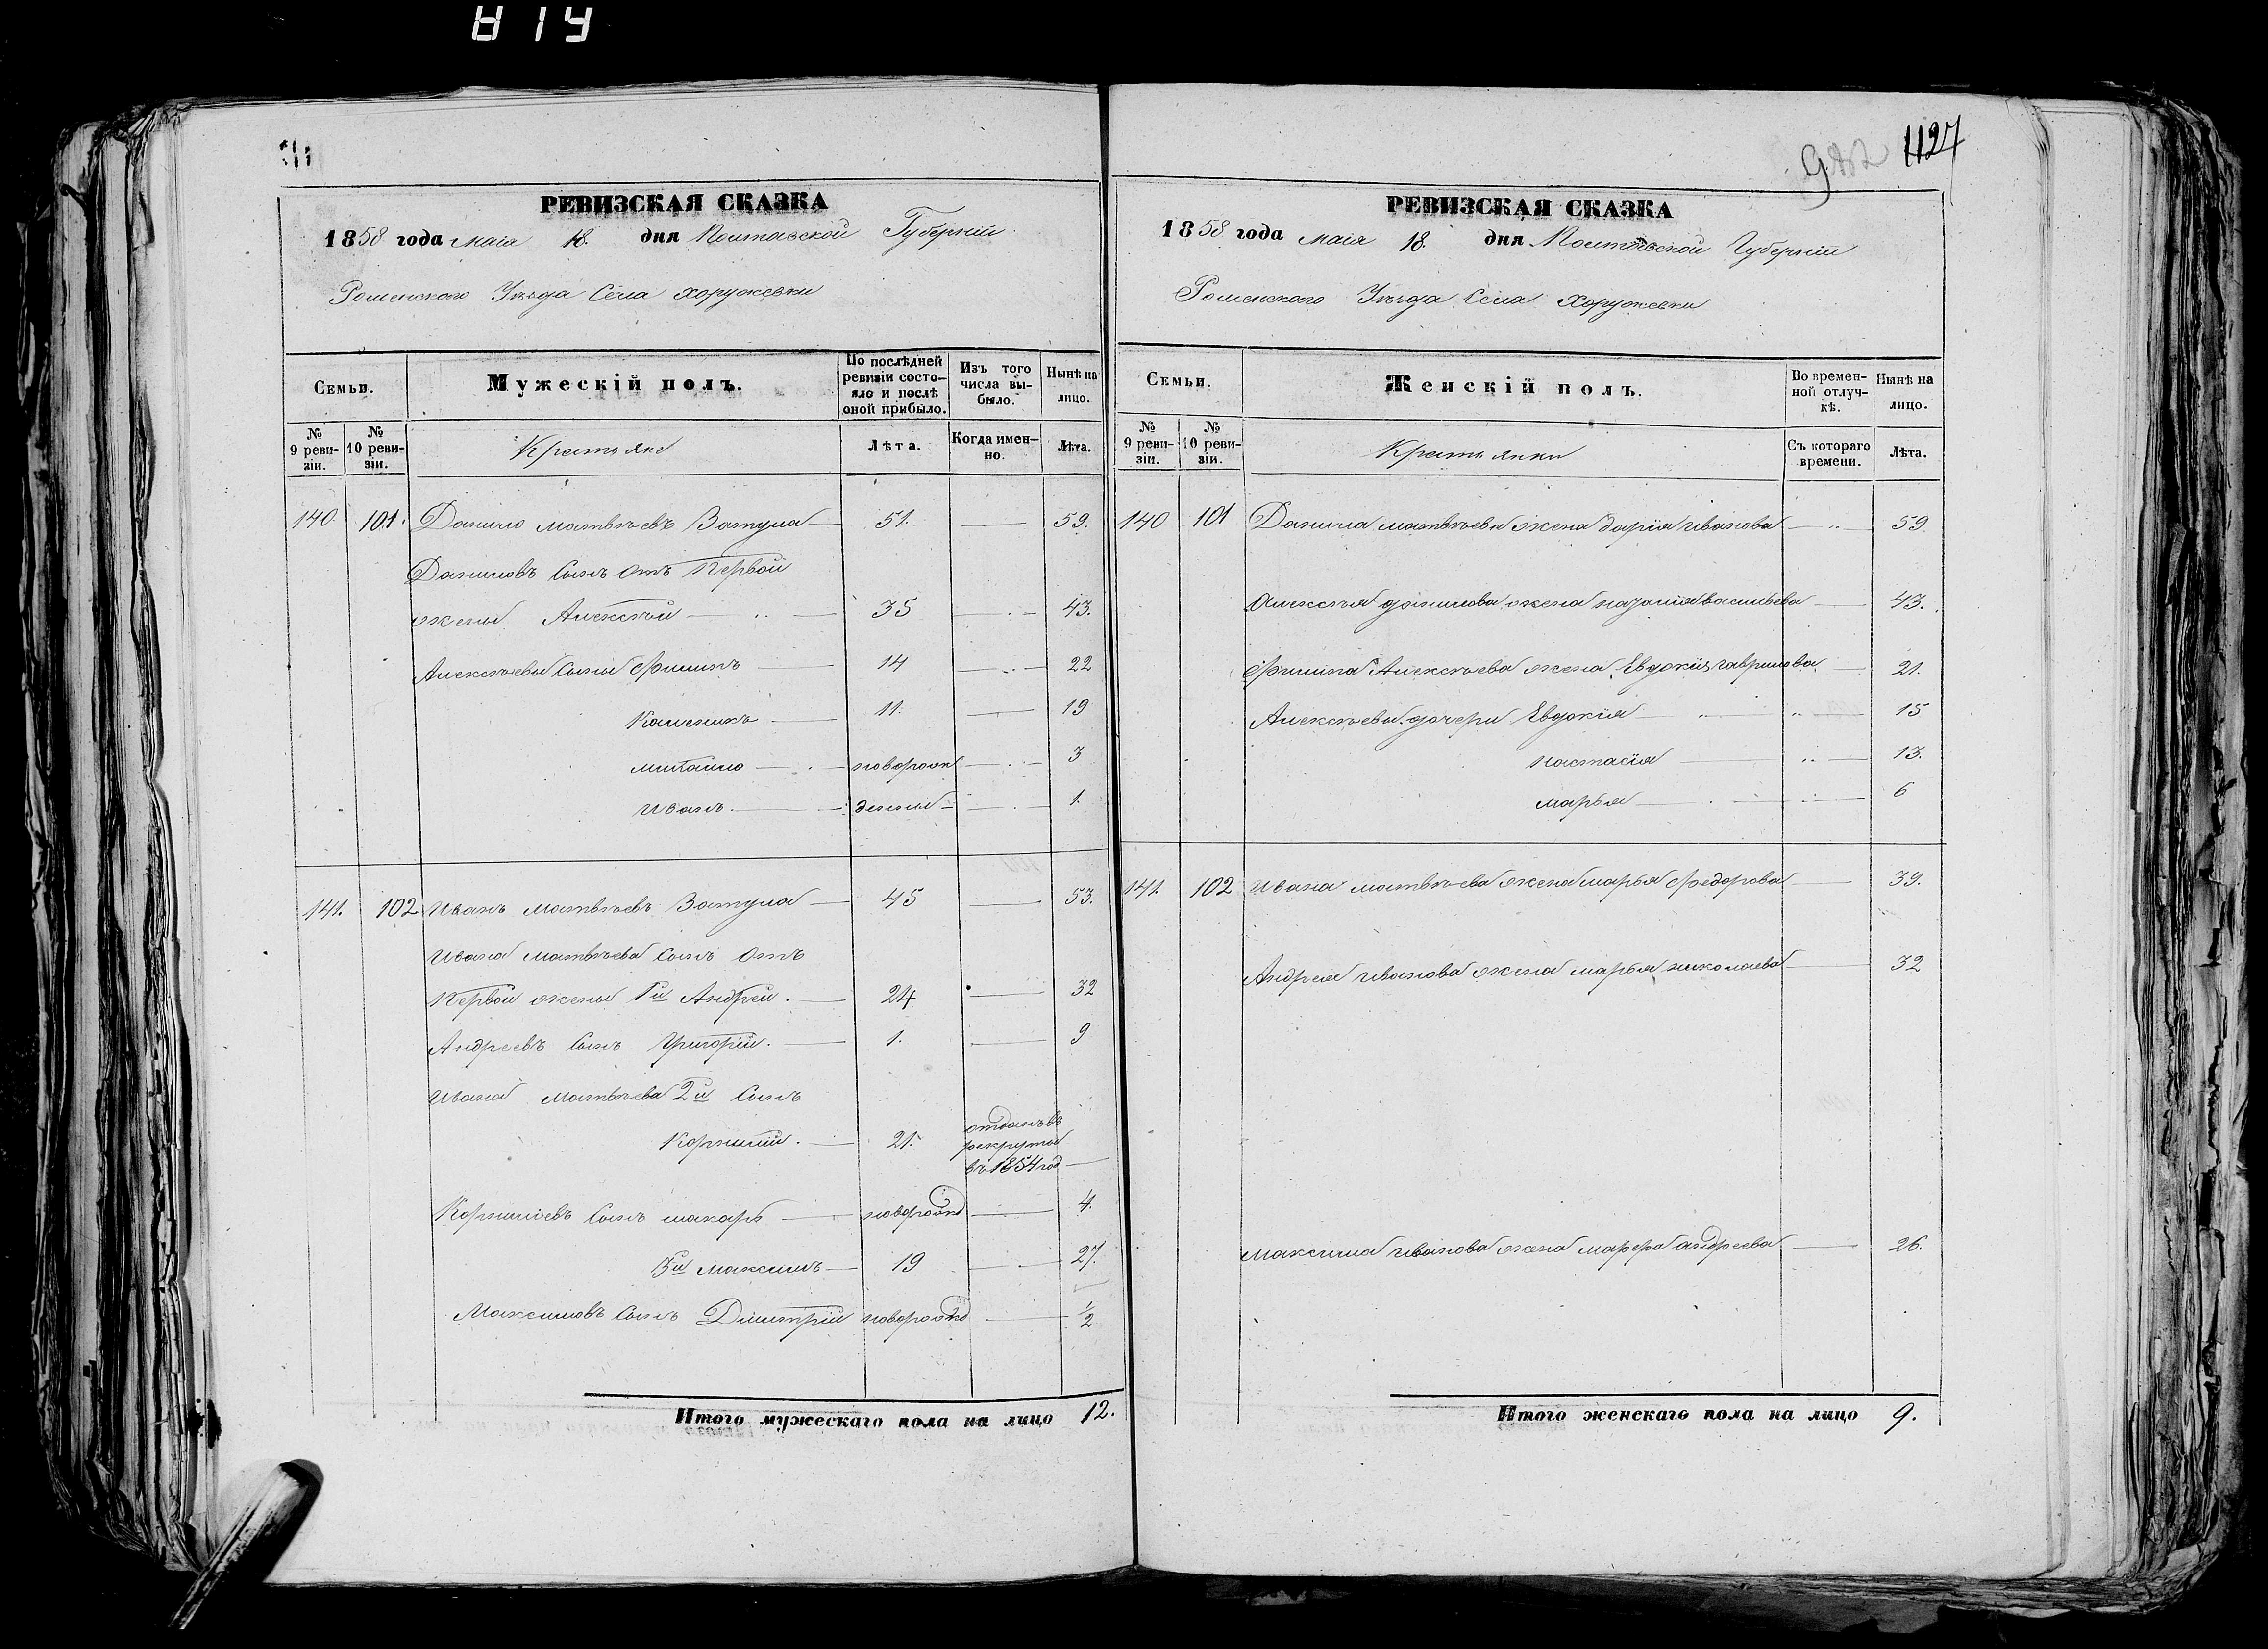 819
1127
РЕВИЗСКАЯ СКАЗКА
1858 года маія 18. дня Полтавской Губерніи
Роменского Уѣзда Села Хоружевки
Семьи.
Мужескій полъ.
По послѣдней ревизіи состояло и послѣ оной прибыло.
Изъ того числа выбыло.
Нынѣ на лицо.
№ 9 ревизіи.
№ 10 ревизіи.
Крестьяне
Лѣта.
Когда именно.
Лѣта.
140. 101. Данило Матвѣевъ Затула 51. 59.
Даниловъ Сынъ отъ Первой
жены Алексѣй 35 43.
Алексѣевы Сыны Филипъ 14 22
Каленикъ 11. 19
Михайло новорож 3
Иванъ денны 1.
141. 102 Иванъ Матвѣевъ Затула 45 53.
Ивана Матвѣева Сынъ отъ
Первой жены 1й Андрей. 24 32
Андреевъ Сынъ Григорій. 1. 9
Ивана Матвѣева 2й Сынъ
Корнилій. 21. отданъ въ рекруты въ 1854 год
Корниліевъ Сынъ Макаръ новорож 4.
3й Максимъ 19 27.
Максимовъ Сынъ Димитрій новорож 1/2
Итого мужескаго пола на лицо 12.
РЕВИЗСКАЯ СКАЗКА
1858 года маія 18. дня Полтавской Губерніи
Роменского Уѣзда Села Хоружевки
Семьи.
Женскій полъ.
Во временной отлучкѣ.
Нынѣ на лицо.
№ 9 ревизіи.
№ 10 ревизіи.
Крестьянки
Съ котораго времени.
Лѣта.
140 101 Данила Матвѣева жена Дарія Иванова 59
Алексѣя Данилова жена Васильева 43.
Филипа Алексѣева жена Евдокія Гаврилова 21.
Алексѣевы дочери Евдокія 15
Настасія 13.
Марья 6
141. 102 Ивана Матвѣева жена Марья Федорова 39.
Андрея Иванова жена Марья Николаева 32
Максима Иванова жена Марфа Андреева 26.
Итого женскаго пола на лицо 9.